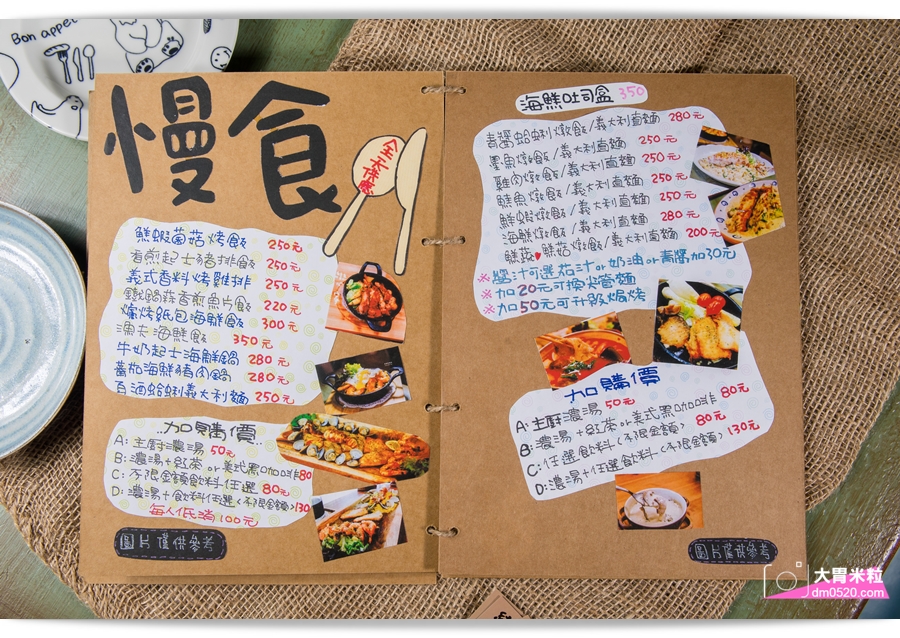 Bon appet
慢食
全天供應
鮮蝦菌菇烤飯 250元
香煎起士豬排飯 250元
義式香料烤雞排 250元
鐵鍋蒜香煎魚片飯 220元
爐烤紙包海鮮飯 300元
漁夫海鮮飯 350元
牛奶起士海鮮鍋 280元
蕃茄海鮮豬肉鍋 280元
白酒蛤蜊義大利麵 250元
加購價
A:主廚濃湯 50元
B:濃湯+紅茶or美式黑咖啡80
C:不限金額飲料任選 80元
D:濃湯+飲料任選<不限金額>130
每人低消100元
圖片僅供參考
海鮮吐司盒 350
青醬蛤蜊燉飯/義大利直麵 280元
墨魚燉飯/義大利直麵 250元
雞肉燉飯/義大利直麵 250元
鮭魚燉飯/義大利直麵 250元
鮮蝦燉飯/義大利直麵 250元
海鮮燉飯/義大利直麵 280元
鮮蔬♥鮮菇燉飯/義大利直麵 200元
※醬汁可選茄汁or奶油or青醬加30元
※加20元可換水管麵
※加50元可升級焗烤
加購價
A:主廚濃湯 50元
B:濃湯+紅茶or美式黑咖啡 80元
C:任選飲料<不限金額> 80元
D:濃湯+任選飲料<不限金額> 130元
圖片僅供參考
大胃米粒
dm0520.com